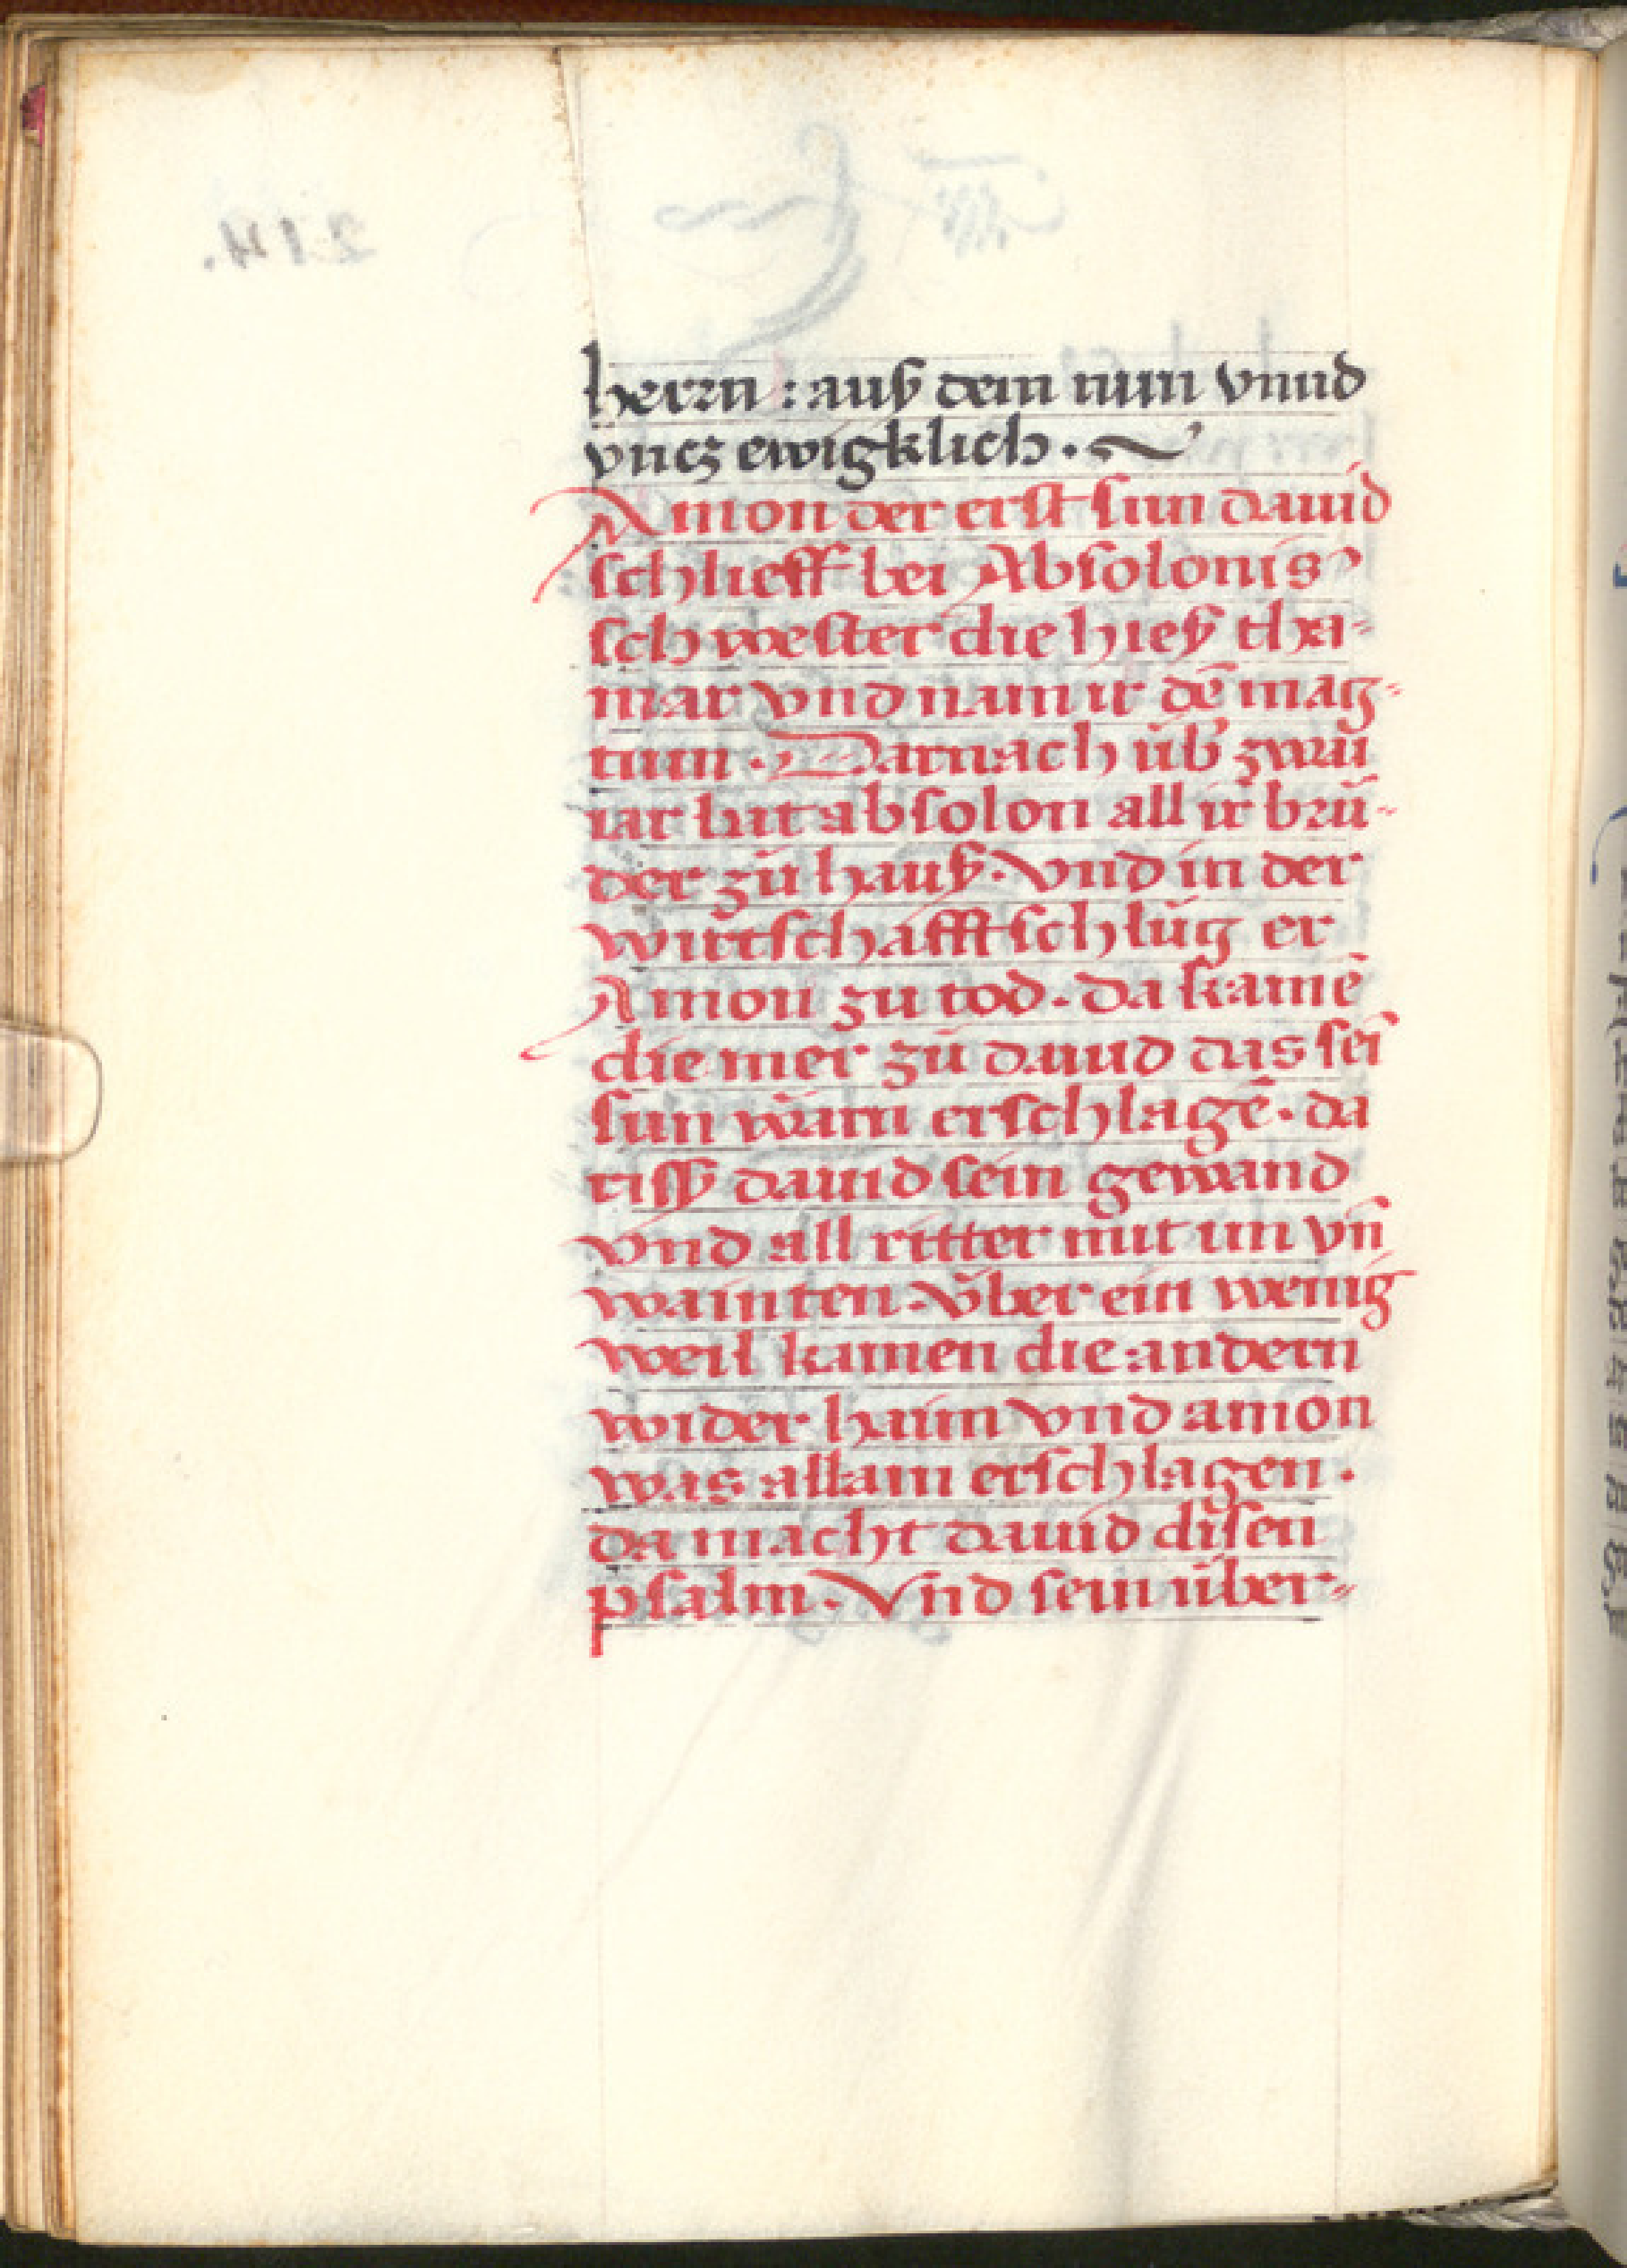 herrn : auß dem nun vnnd
vncz ewigklich .
Amon der erst sun dauid
schlieff bei Absolonis
schwester die hieß tha-
mar vnd nam ir dē mag-
tum . Darnach üb zwai
iar bat absolon all ir brü-
der zů hauß . vnd in der
wirtschafft schlůg er
Amon zu tod . da kamē
die mer zů dauid das sei
sun wärn erschlagē . da
riss dauid sein gewand
vnd all ritter mit im vn̄
wainten . v̈ber ein wenig
weil kamen die andern
wider haim vnd amon
was allain erschlagen .
da macht dauid disen
psalm . Vnd sein über-